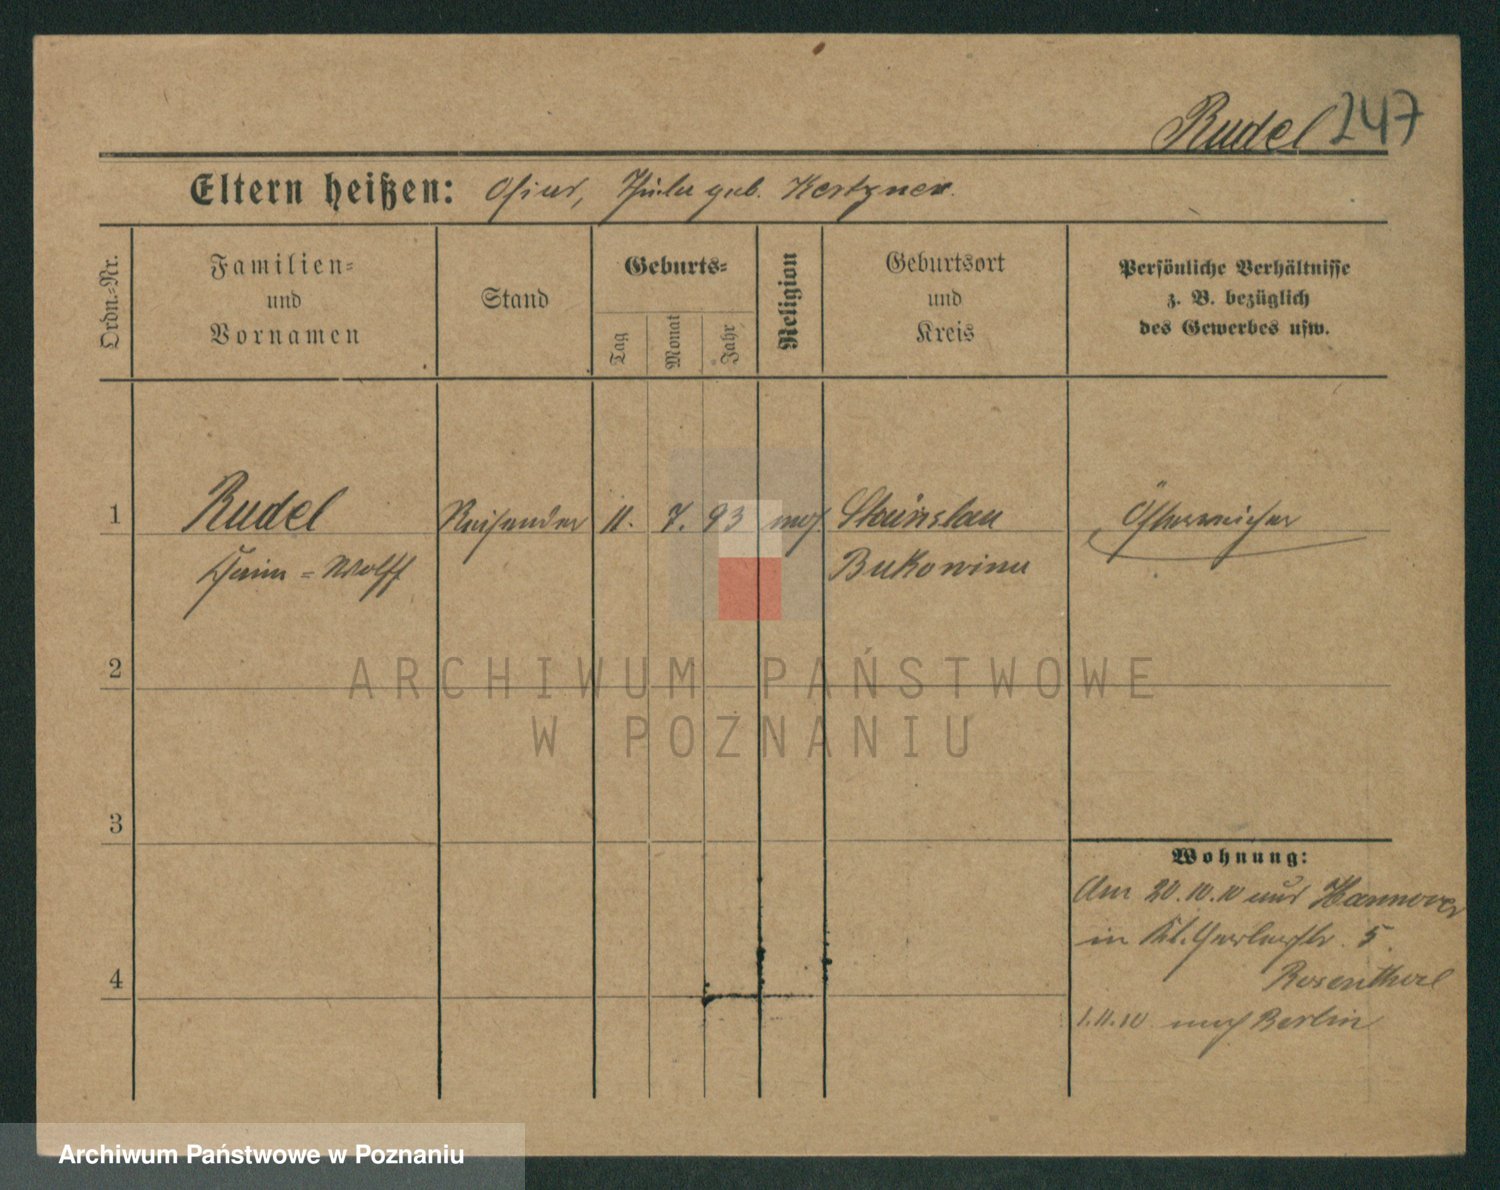 Rudel 247
Eltern heißen: geb. Kertzner.
Ordn.-Nr.
Familien-
und
Vornamen
Stand
Geburts-
Tag
Monat
Jahr
Religion
Geburtsort
und
Kreis
Persönliche Verhältnisse
z. B. bezüglich
des Gewerbes usw.
1 Rudel Reisender 11. 7. 93 mos. Stanislau Österreicher
Chaim = Wolff Bukowina
2
ARCHIWUM PAŃSTWOWE
W POZNANIU
3
Wohnung:
Am 20.10.10 aus Hannover
in Kl. Gerberstr. 5.
4 Rosenthal
1.11.10 nach Berlin
Archiwum Państwowe w Poznaniu